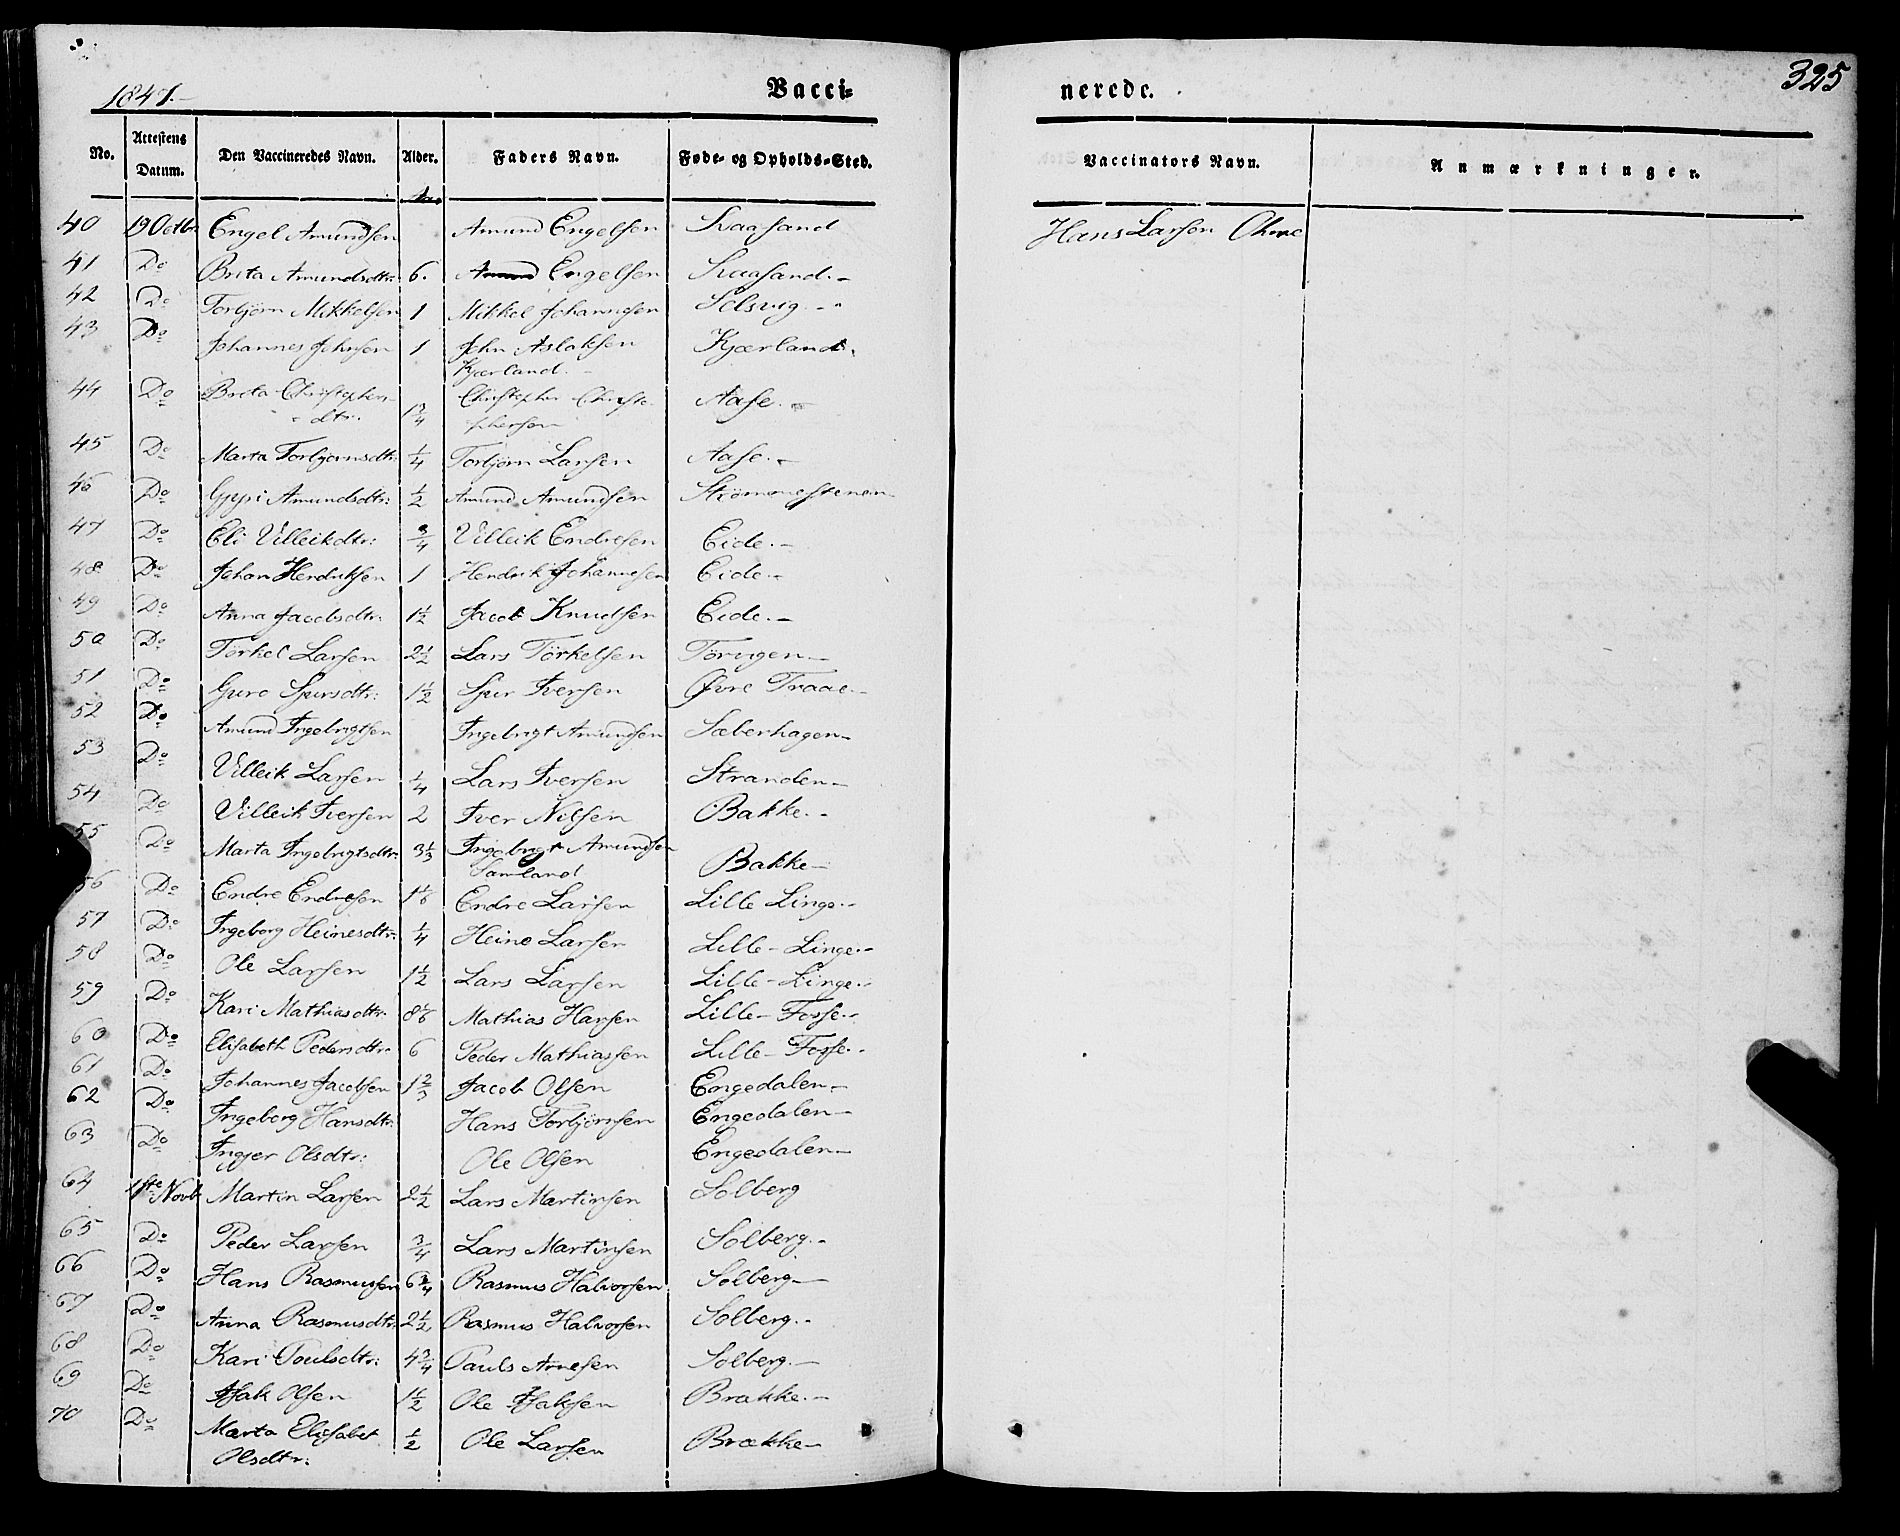 1847.-
Vacci=
nerede.
325
No. Attestens Datum. Den Vaccineredes Navn. Alder. Faders Navn. Føde- og Opholds-Sted. Vaccinators Navn. Anmærkninger.
40 19 Octbr Engel Amundsen Amund Engelsen Kaasand Hans Larsen
41 Do Brita Amundsdtr: 6. Amund Engelsen Kaasand.-
42 Do Torbjørn Mikkelsen 1 Mikkel Johannesen Selsvig.-
43 Do Johannes Johnsen 1 John Aslaksen Kjærland.
Kjærland.-
44 Do Brita Christophers- 1 3/4 Christopher Christo- Aase.-
dtr. phersen
45 Do Marta Torbjørnsdtr: 1/4 Torbjørn Larsen Aase.-
46 Do Gyri Amundsdtr: 1/2 Amund Amundsen Strømmestenen
47 Do Eli Villeikdtr: 3/4 Villeik Endresen Eide.-
48 Do Johan Hendriksen 1 Hendrik Johannesen Eide.-
49 Do Anna Jacobsdtr: 1 1/2 Jacob Knudsen Eide.-
50 Do Törkel Larsen 2 1/2 Lars Törkelsen Törvigen-
51 Do Guro Spursdtr: 1 1/2 Spur Iversen Øvre Traae-
52 Do Amund Ingebrigtsen Ingebrigt Amundsen Sæberhagen-
53 Do Villeik Larsen 1/4 Lars Iversen Stranden-
54 Do Villeik Iversen 2 Iver Nilsen Bakke.-
55 Do Marta Ingebrigtsdtr: 3 1/3 Ingebrigt Amundsen Bakke-
Samland
56 Do Endre Endresen 1 1/6 Endre Larsen Lille Linge.-
57 Do Ingeborg Heinesdtr: 1/4 Heine Larsen Lille-Linge.-
58 Do Ole Larsen 1 1/2 Lars Larsen Lille-Linge.-
59 Do Kari Mathiasdtr. 8 1/6 Mathias Hansen Lille-Fosse.-
60 Do Elisabeth Pedersdtr. 6 Peder Mathiassen Lille-Fosse.-
61 Do Johannes Jacobsen 1 2/3 Jacob Olsen Engedalen-
62 Do Ingeborg Hansdtr: Hans Torbjörnsen Engedalen-
63 Do Ingjer Olsdtr: Ole Olsen Engedalen-
64 1ste Novb Martin Larsen 2 1/2 Lars Martinsen Solberg
65 Do Peder Larsen 3/4 Lars Martinsen Solberg.-
66 Do Hans Rasmussen 6 3/4 Rasmus Halvorsen Solberg-
67 Do Anna Rasmusdtr: 2 1/2 Rasmus Halvorsen Solberg.-
68 Do Kari Poulsdtr: 4 3/4 Pauls Arnesen Solberg.-
69 Do Isak Olsen 1 1/2 Ole Isaksen Brakke.-
70 Do Marta Elisabet 1/2 Ole Larsen Brække-
Olsdtr: